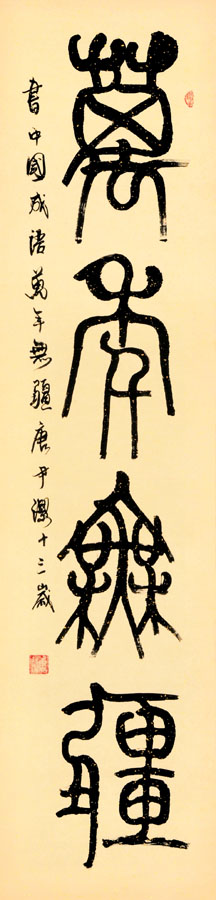 萬年無疆
書中國成語萬年無疆唐尹十三歲